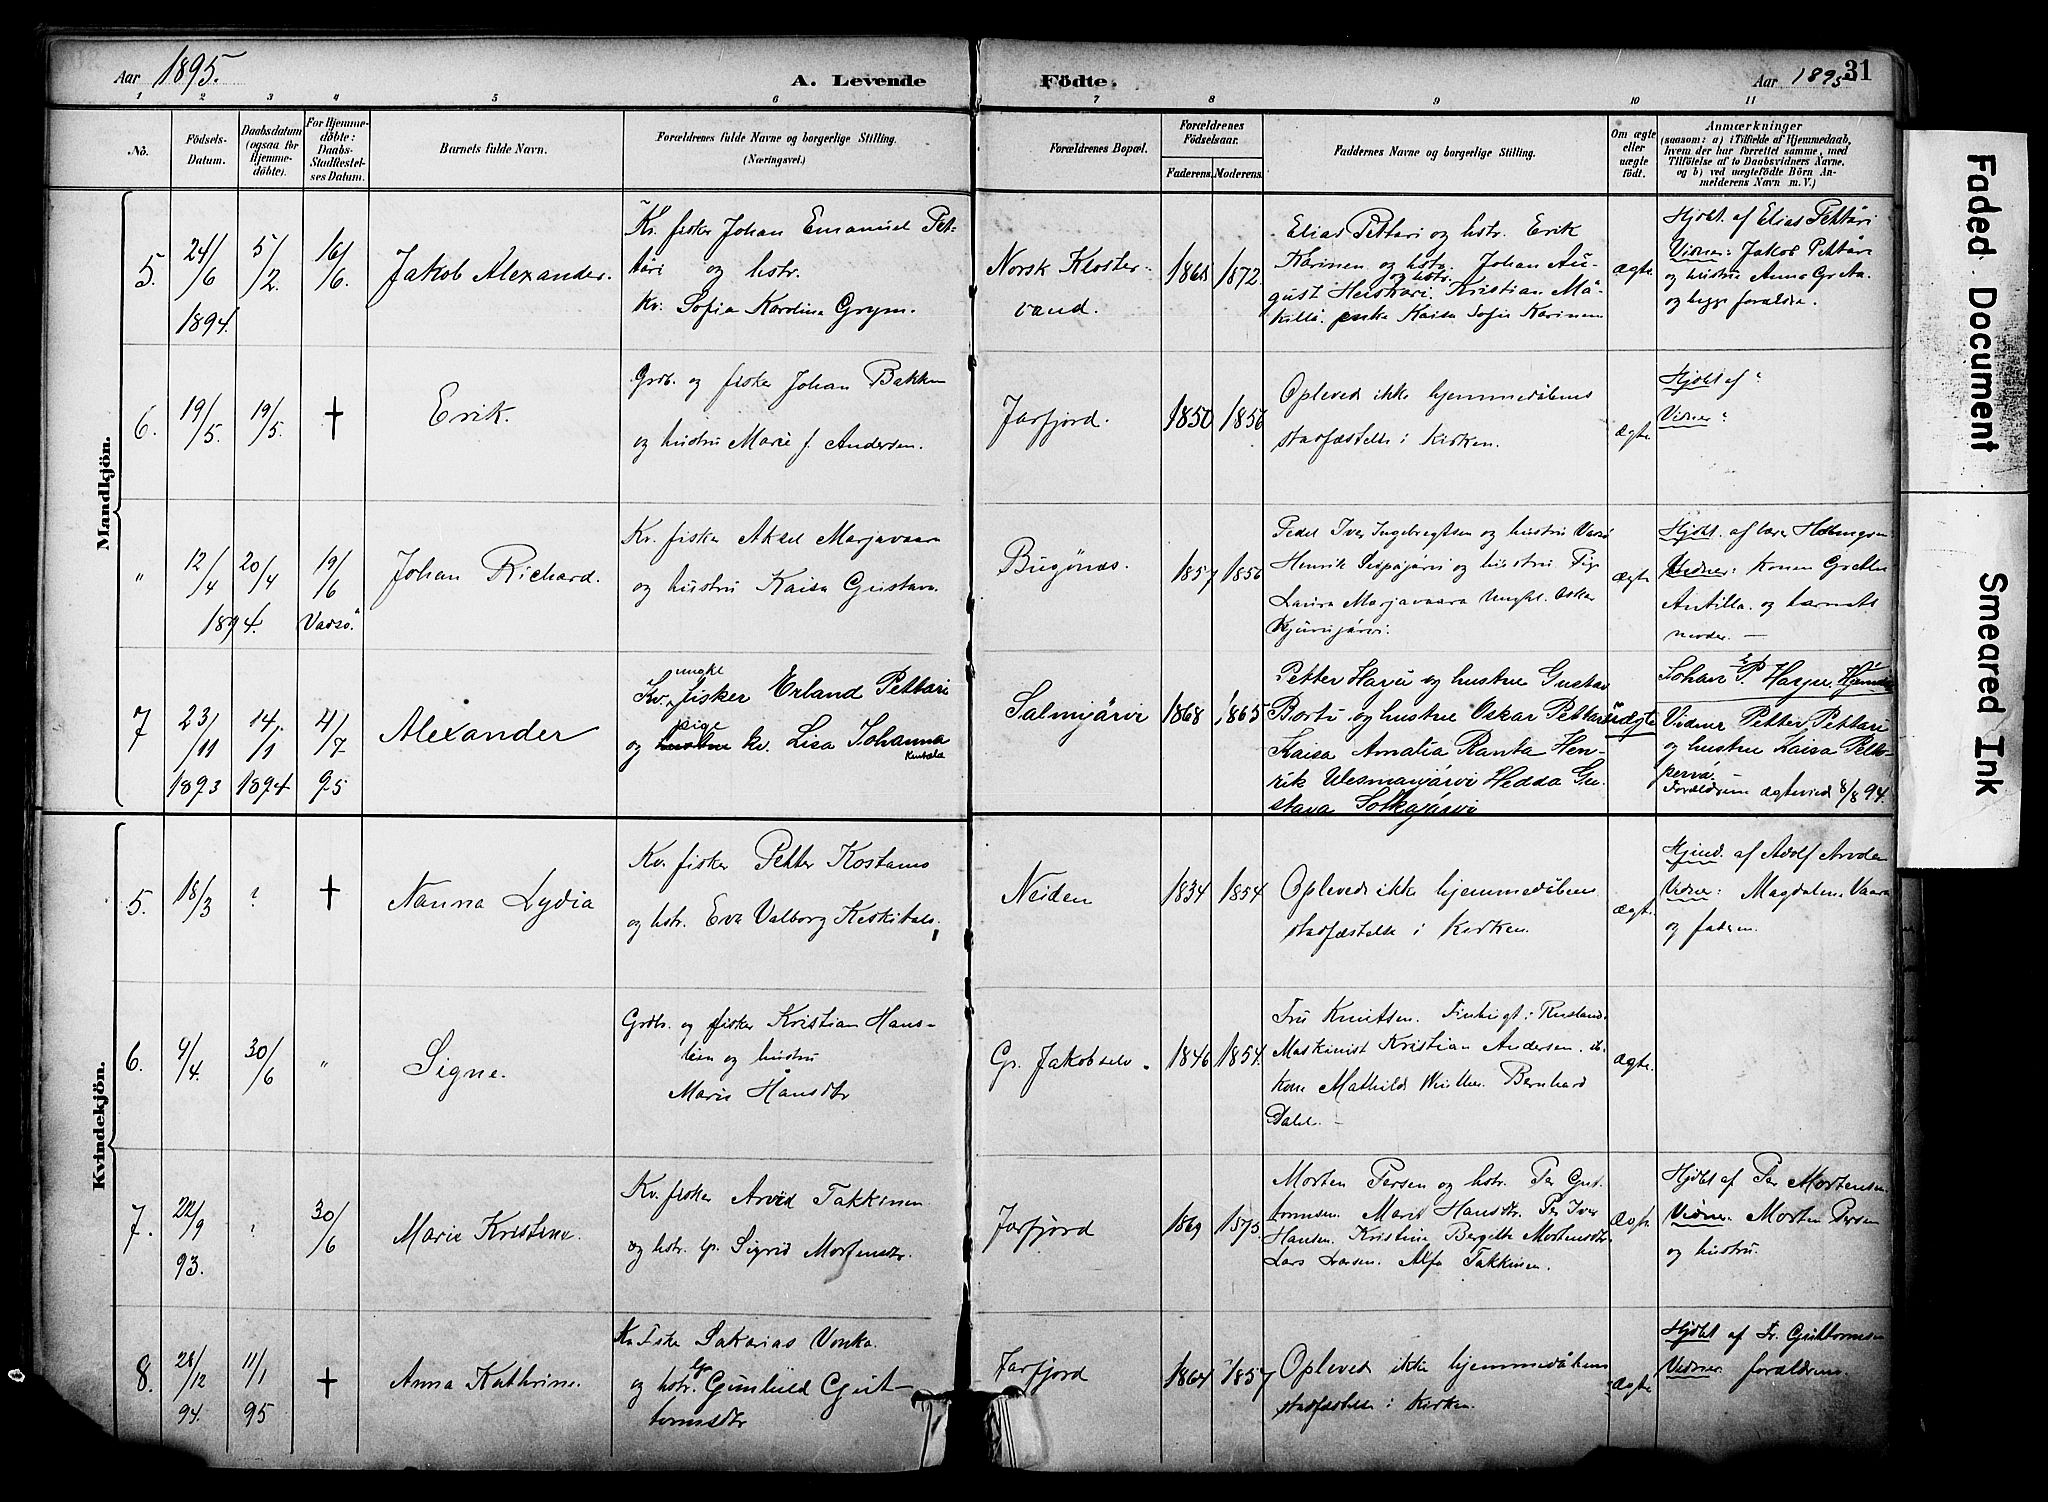 Aar 1895.
A. Levende
Födte.
Aar 1895
31
1 2 3 4 5 6 7 8 9 10 11
No.
Födsels-
Datum.
Daabsdatum
(ogsaa for
Hjemme-
döbte).
For Hjemme-
döbte:
Daabs-
Stadfæstel-
ses Datum.
Barnets fulde Navn.
Forældrenes fulde Navne og borgerlige Stilling.
(Næringsvei.)
Forældrenes Bopæl.
Forældrenes
Födselsaar.
Faderens. Moderens.
Faddernes Navne og borgerlige Stilling.
Om ægte
eller
uægte
født.
Anmærkninger
(saasom: a) i Tilfælde af Hjemmedaab,
hvem der har forrettet samme, med
Tilföielse af to Daabsvidners Navne,
og b) ved uægtefödte Börn An-
melderens Navn m. V.)
Mandkjön.
5.
24/6
1894.
5/2
16/6.
Jakob Alexander.
Kv. fisker Johan Emanuel Pet-
täri og hstr.
Kv. Sofia Karolina Grym.
Norsk Kloster-
vand.
1868 1872.
Elias Pettari og hstr. Erik
Karinen og hstr. Johan Au-
gust Heiskari. og hstr. Kristian Mä-
killä. enke Kaisa Sofie Karinen
ægte
Hjdbt. af Elias Pettäri
Vidner: Jakob Pettäri
og hustru Anna
og begge forældre.
6.
19/5.
19/5.
†
Erik.
Grdb. og fisker Johan Bakken
og hustru Marie f. Andersen.
Jarfjord.
1850 1856
Opleved ikke hjemmedåbens
stadfæstelse i Kirken.
ægte
Hjdbt af "
Vidner "
"
12/4
1894.
20/4
19/6
Vadsö.
Johan Richard.
Kv. fisker Aksel Marjavaara
og hustru Kaisa Gustava.
Bugönæs.
1857 1856
Fedel Iver Ingebregtsen og hustru Vadsö
Henrik og hustru Pige
Laura Marjavaara Ungkl. Oskar
ægte
Hjdbt. af lærer
Vidner: Konen Grethe
Antilla og barnets
moder. —
7
23/11
1893
14/1
1894
4/7
95
Alexander
Kv. ungkl fisker Erland Pettari
og pige kv. Lisa Johanna
Kintala
Salmijärvi
1868 1865
Petter Harju og hustru Gustav
Bortu og hustru Oskar Pettari
Kaisa Amalia Ranta Hen-
rik Ulesmanjärvi Hedda Gu-
stava Sotkajärvi
uægte
Johan P. Harju.
Vidner Petter Pettari
og hustru Kaisa
Forældrene ægteviet 8/8 94.
Kvindekjön.
5.
18/3
?
†
Nanna Lydia
Kv. fisker Petter Kostamo
og hstr. Eva Valborg Keskitalo
Neiden
1834 1854
Opleved ikke hjemmedåbens
stadfæstelse i Kirken.
ægte.
Hjmd. af Adolf
Vidner: Magdalena Vaara
og faderen.
6.
9/4.
30/6
"
Signe.
Grdbr. og fisker Kristian Hans-
sen og hustru
Marie Hansdtr
Gr. Jakobselv.
1846 1854.
Fru Knutsen. i Rusland.
Maskinist Kristian Andersen.
Kone Mathilde Bernhard
Dahl. —
ægte.
7.
22/9
93.
?
30/6
Marie Kristine.
Kv. fisker Arvid Takkinen
og hstr. lp. Sigrid Mortensdtr.
Jarfjord
1869 1873.
Morten Persen og hstr. Per Gut-
tormsen. Marit Hansdtr. Per Iver
Hansen. Kristine Bergitte Mortensdtr
Lars Larsen. Alfa Takkinen.
ægte
Hjdbt af Per Mortensen.
Vidner. Morten Persen
og hustru.
8.
28/12
94.
11/1
95
†
Anna Kathrine.
Kv Fisker Sakarias Vonka.
og hstr. lp Gunhild Gut-
tormsdtr
Jarfjord
1864 1857
Opleved ikke hjemmedåbens
stadfæstelse i Kirken.
ægte
Hjdbt af Fr. Guttormsen
Vidner forældrene.
Faded Document
Smeared Ink